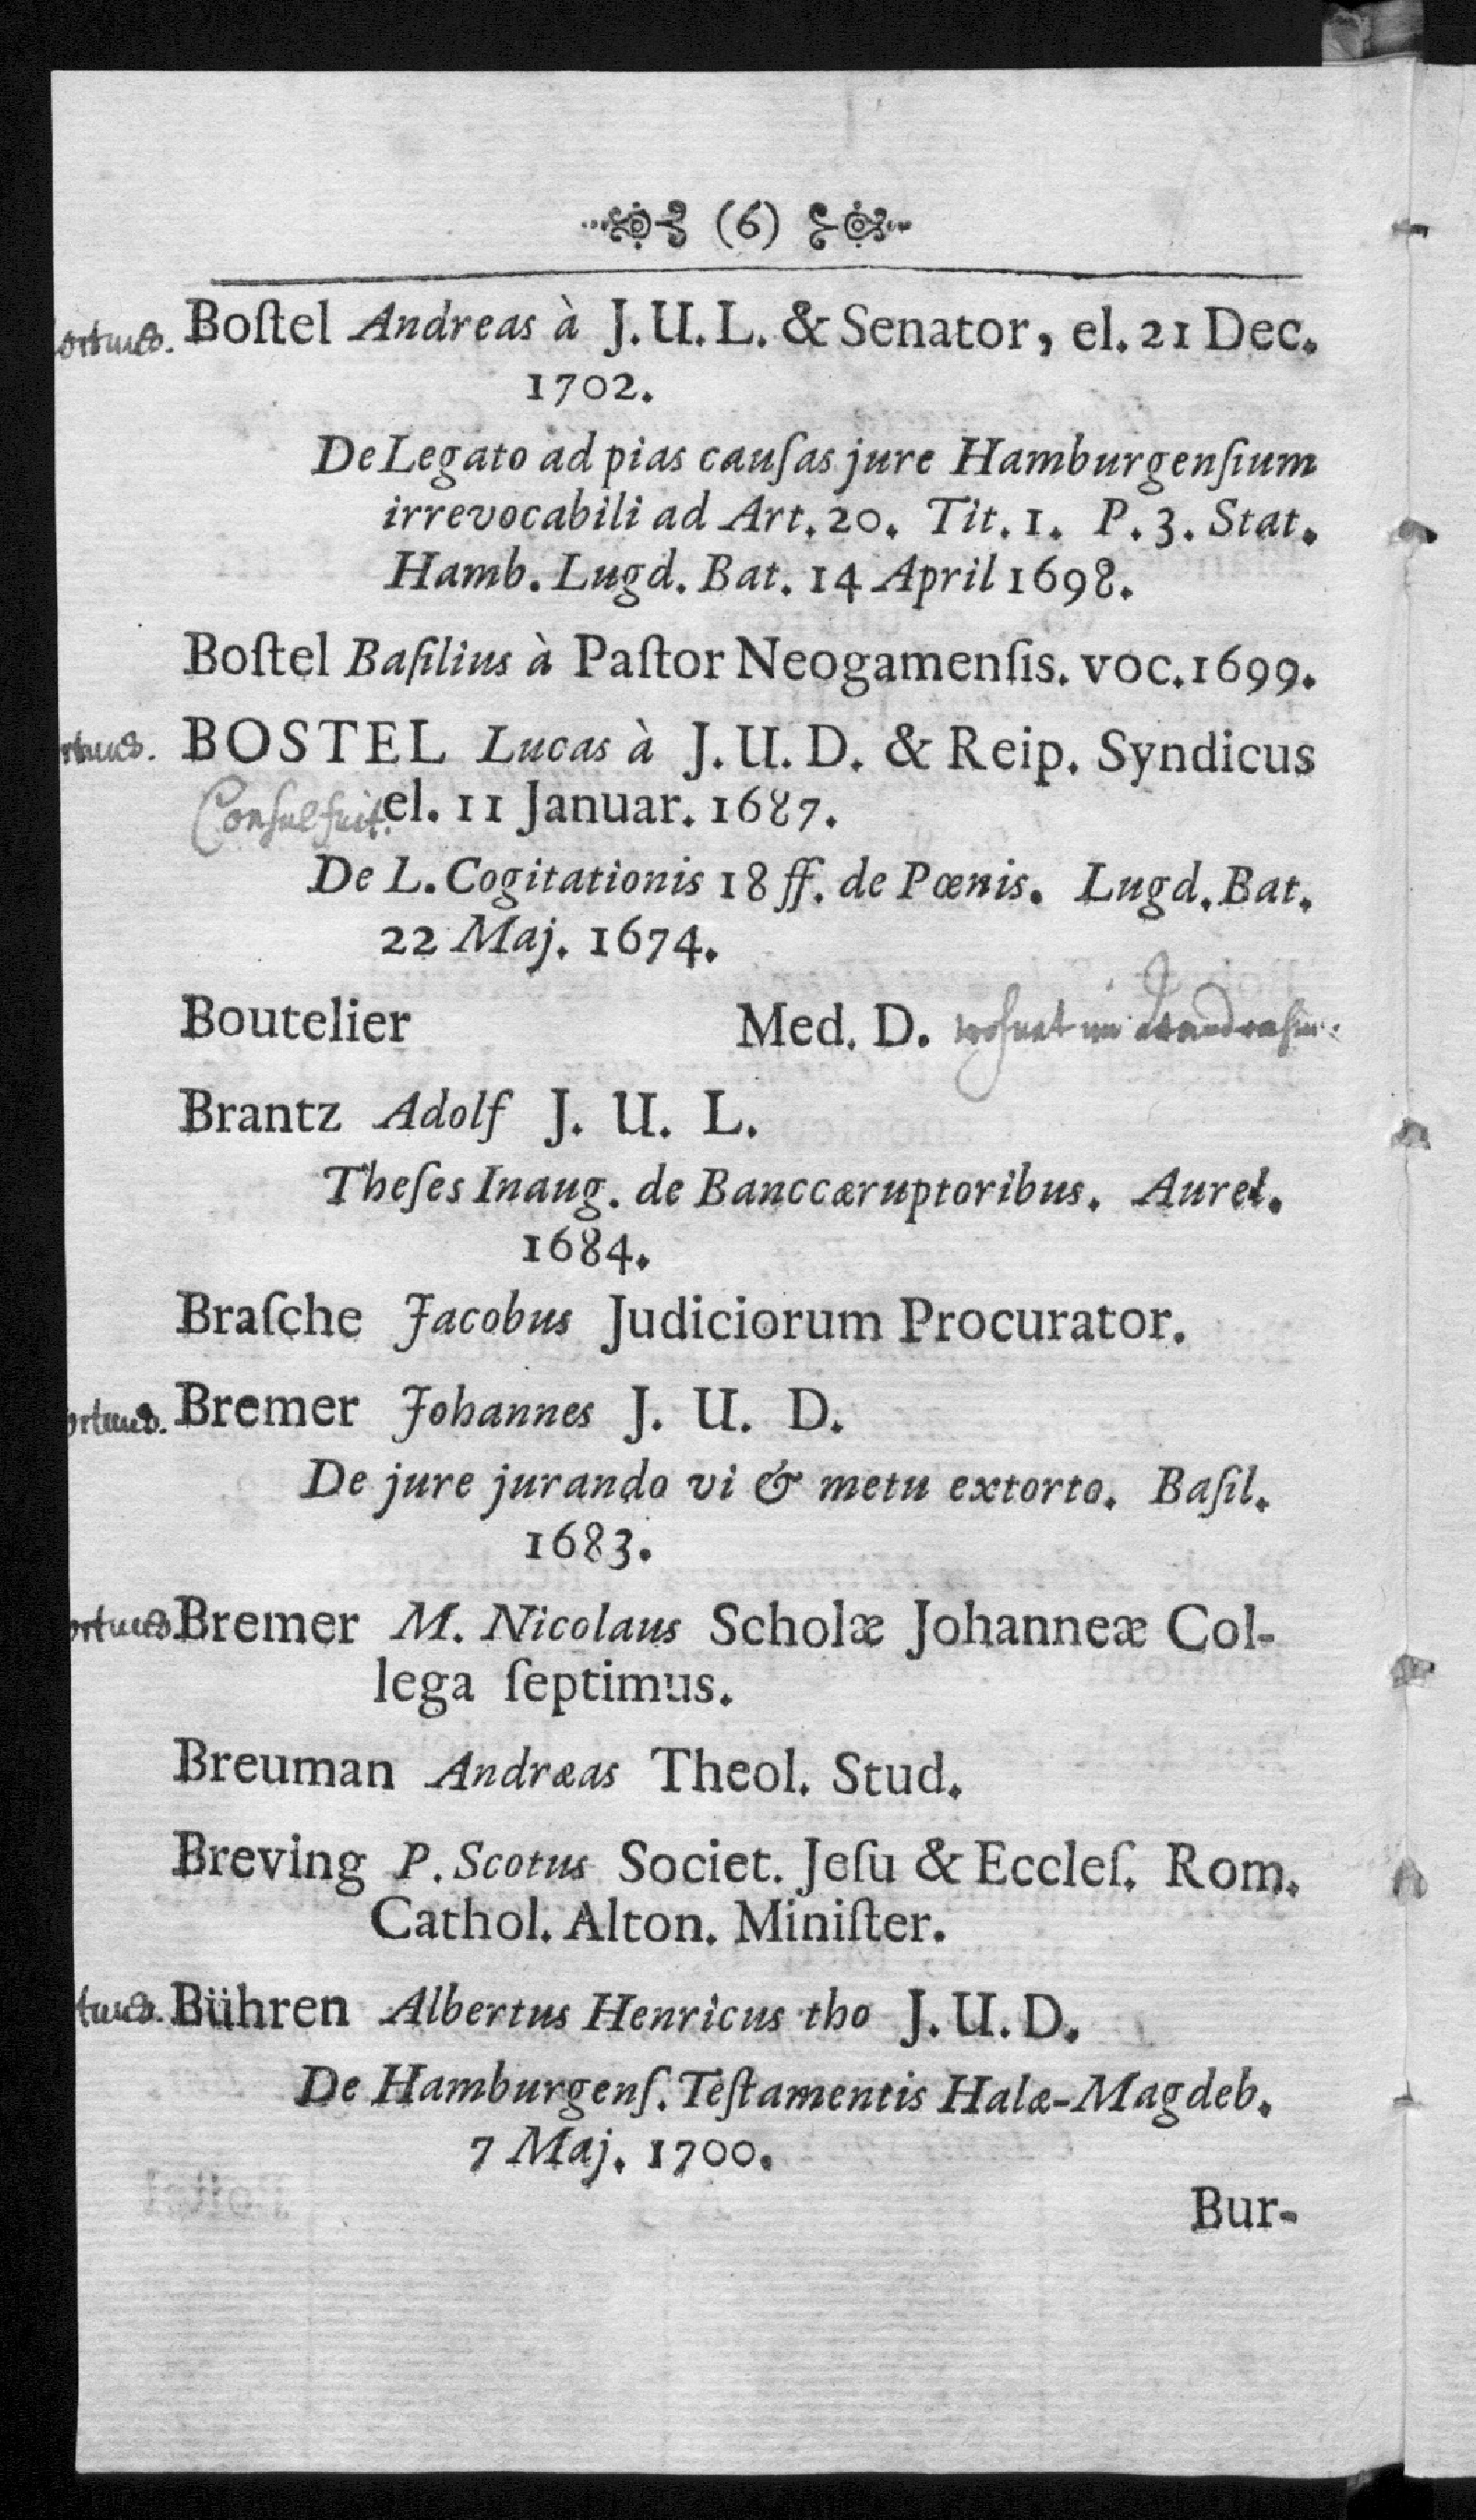 (6)
ortuus. Boſtel Andreas à J. U. L. & Senator, el. 21 Dec.
1702.
De Legato ad pias cauſas jure Hamburgenſium
irrevocabili ad Art. 20. Tit. 1. P. 3. Stat.
Hamb. Lugd. Bat. 14 April 1698.
Boſtel Baſilius à Paſtor Neogamenſis. voc. 1699.
rtuus. BOSTEL Lucas à J. U. D. & Reip. Syndicus
Consul fuit. el. 11 Januar. 1687.
De L. Cogitationis 18 ff. de Pœnis. Lugd. Bat.
22 Maj. 1674.
Boutelier Med. D. wohnt im
Brantz Adolf J. U. L.
Theſes Inaug. de Banccæruptoribus. Aurel.
1684.
Braſche Jacobus Judiciorum Procurator.
ortuus. Bremer Johannes J. U. D.
De jure jurando vi & metu extorto. Baſil.
1683.
ortuus Bremer M. Nicolaus Scholæ Johanneæ Col-
lega ſeptimus.
Breuman Andræas Theol. Stud.
Breving P. Scotus Societ. Jeſu & Eccleſ. Rom.
Cathol. Alton. Miniſter.
tuus. Bühren Albertus Henricus tho J. U. D.
De Hamburgenſ. Teſtamentis Halæ-Magdeb.
7 Maj. 1700.
Bur-